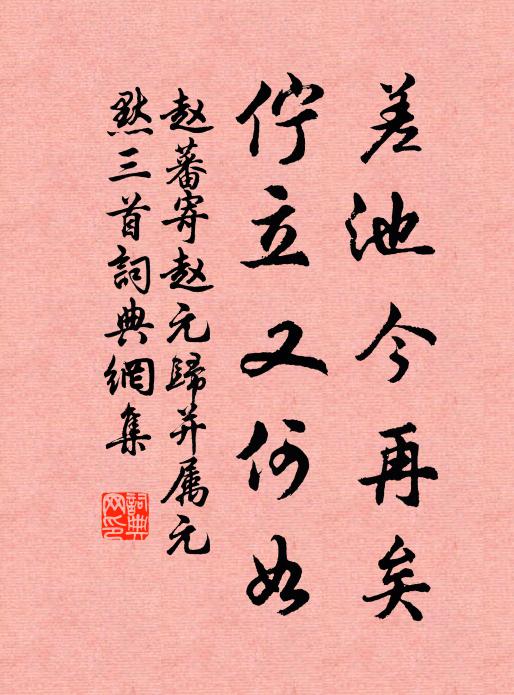 差池今再矣
佇立又何如
赵蕃寄赵元歸并属元
默三首詞典網集
詞典网印